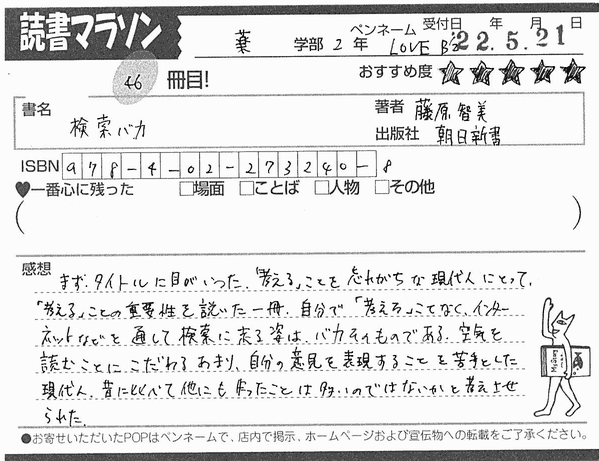 読書マラソン
薬 学部 2 年 ペンネーム LOVE B'z 受付日 年 月 日 22.5.21
46 冊目! おすすめ度 ☆☆☆☆☆
書名 検索バカ
著者 藤原智美
出版社 朝日新書
ISBN 978-4-02-273240-8
♥一番心に残った □場面 □ことば □人物 □その他
( )
感想
まず、タイトルに目がいった。「考える」ことを忘れがちな現代人にとって、
「考える」ことの重要性を説いた一冊。自分で「考える」ことなく、インター
ネットなどを通して検索に走る姿は、バカそのものである。空気を
読むことにこだわるあまり、自分の意見を表現することを苦手とした
現代人。昔に比べて他にも失ったことは多いのではないかと考えさせ
られた。
●お寄せいただいたPOPはペンネームで、店内で掲示、ホームページおよび宣伝物への転載をご了承ください。